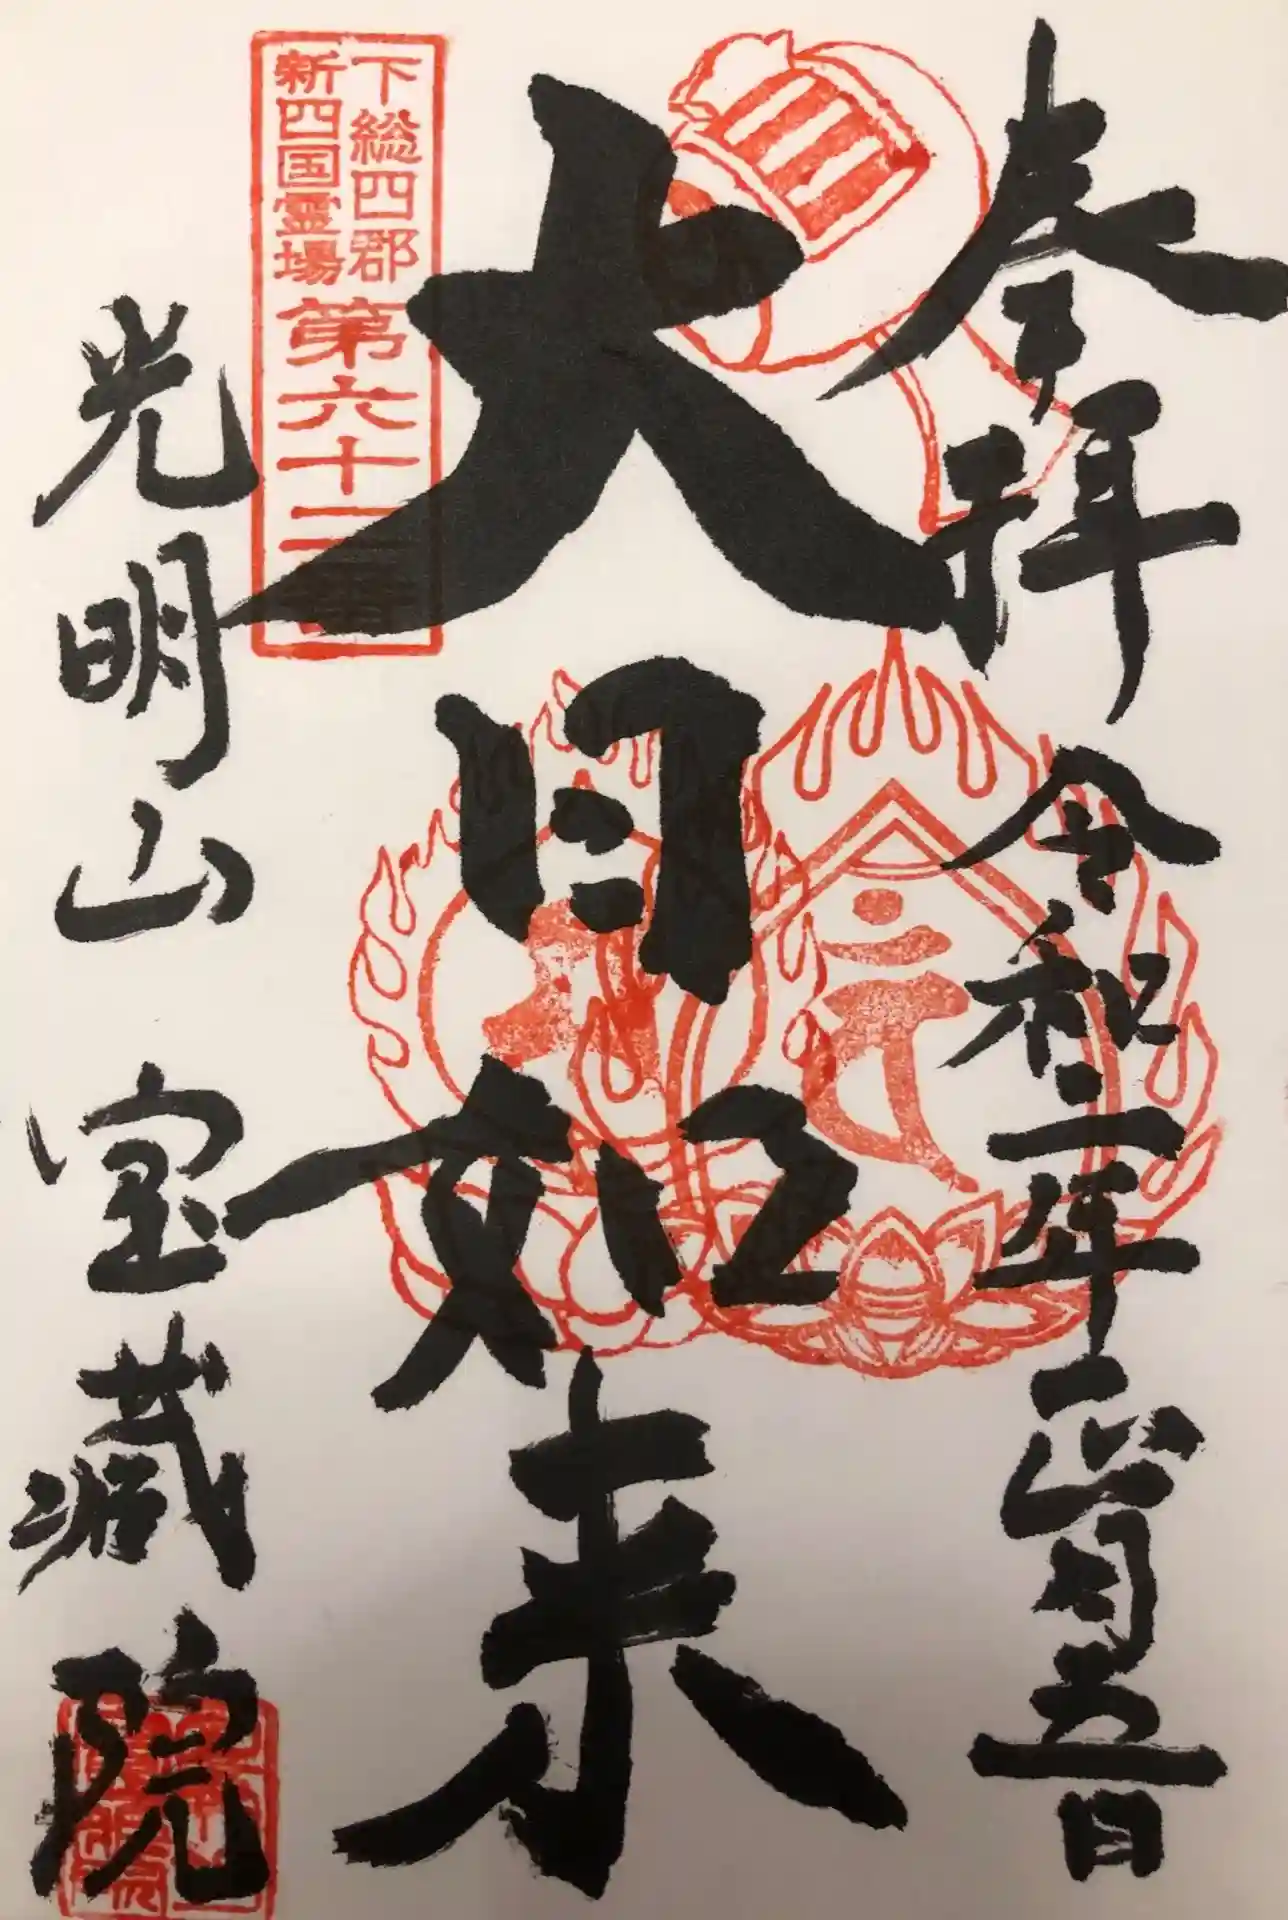 奉拝
令和二年正月五日
大日如来
下総四郡
新四国霊場
第六十二番
光明山 宝蔵院